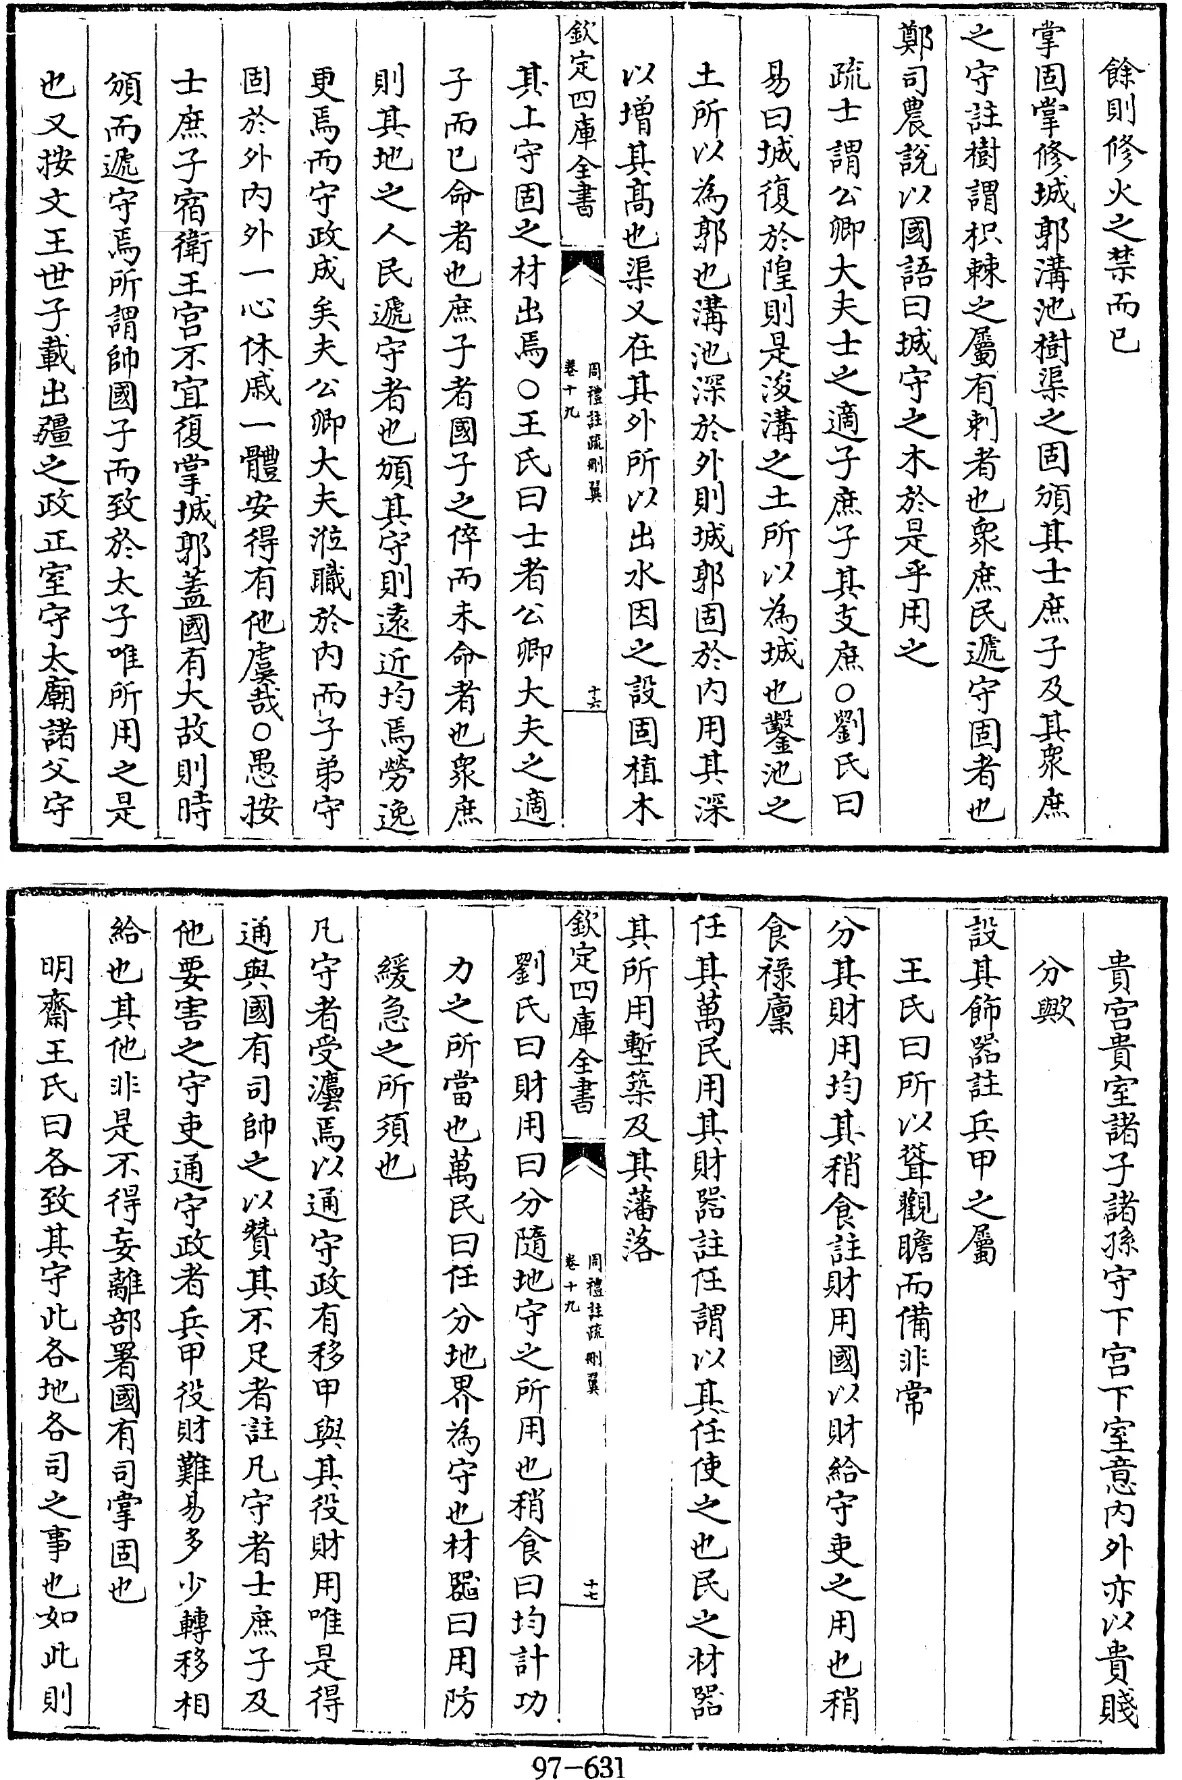 餘則修火之禁而已
掌固掌修城郭溝池樹渠之固頒其士庶子及其衆庶
之守註樹謂枳棘之屬有刺者也衆庶民遞守固者也
鄭司農說以國語曰城守之木於是乎用之
疏士謂公卿大夫士之適子庶子其支庶○劉氏曰
易曰城復於隍則是浚溝之土所以為城也鑿池之
土所以為郭也溝池深於外則城郭固於内用其深
以增其髙也渠又在其外所以出水因之設固植木
欽定四庫全書
周禮註疏刪翼
卷十九
十六
其上守固之材出焉○王氏曰士者公卿大夫之適
子而已命者也庶子者國子之倅而未命者也衆庶
則其地之人民遞守者也頒其守則逺近均焉勞逸
更焉而守政成矣夫公卿大夫涖職於内而子弟守
固於外内外一心休戚一體安得有他虞哉○愚按
士庶子宿衛王宫不宜復掌城郭蓋國有大故則時
頒而遞守焉所謂帥國子而致於太子唯所用之是
也又按文王世子載出疆之政正室守太廟諸父守
貴宫貴室諸子諸孫守下宫下室意内外亦以貴賤
分歟
設其飾器註兵甲之屬
王氏曰所以聳觀瞻而備非常
分其財用均其稍食註財用國以財給守吏之用也稍
食祿廩
任其萬民用其財器註任謂以其任使之也民之材器
其所用塹築及其藩落
欽定四庫全書
周禮註疏刪翼
卷十九
十七
劉氏曰財用曰分隨地守之所用也稍食曰均計功
力之所當也萬民曰任分地界為守也材器曰用防
緩急之所須也
凡守者受灋焉以通守政有移甲與其役財用唯是得
通與國有司帥之以贊其不足者註凡守者士庶子及
他要害之守吏通守政者兵甲役財難易多少轉移相
給也其他非是不得妄離部署國有司掌固也
明齋王氏曰各致其守此各地各司之事也如此則
97-631